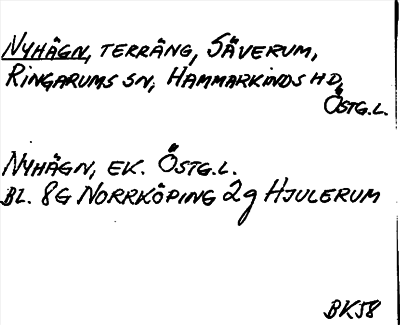 NYHÄGN, TERRÄNG, SÄVERUM,
RINGARUMS SN, HAMMARKINDS HD,
ÖSTG.L.
NYHÄGN, EK. ÖSTG.L.
BL. 8G NORRKÖPING 2g HJULERUM
BKJ8